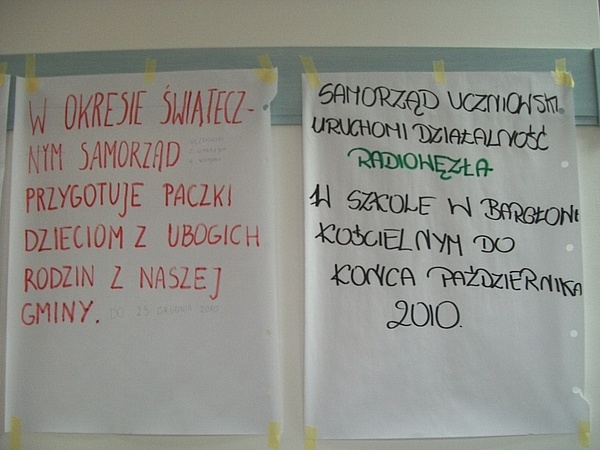 W OKRESIE ŚWIĄTECZ-
NYM SAMORZĄD
PRZYGOTUJE PACZKI
DZIECIOM Z UBOGICH
RODZIN Z NASZEJ
GMINY. DO 23 GRUDNIA 2010
SAMORZĄD UCZNIOWSKI
URUCHOMI DZIAŁALNOŚĆ
RADIOWĘZŁA
W SZKOLE W BARGŁOWIE
KOŚCIELNYM DO
KOŃCA PAŹDZIERNIKA
2010.